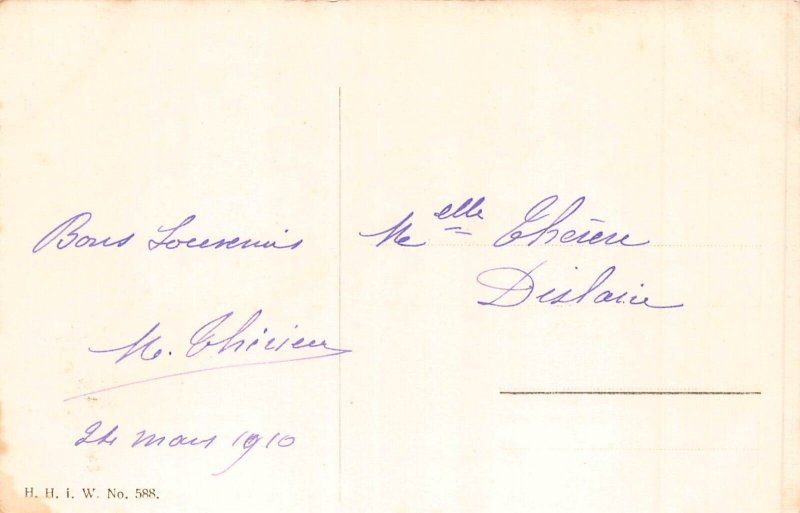 Bons Souvenirs
M. Thérien
24 mars 1910
H. H. i. W. No. 588.
Melle Thérèse
Dislaire